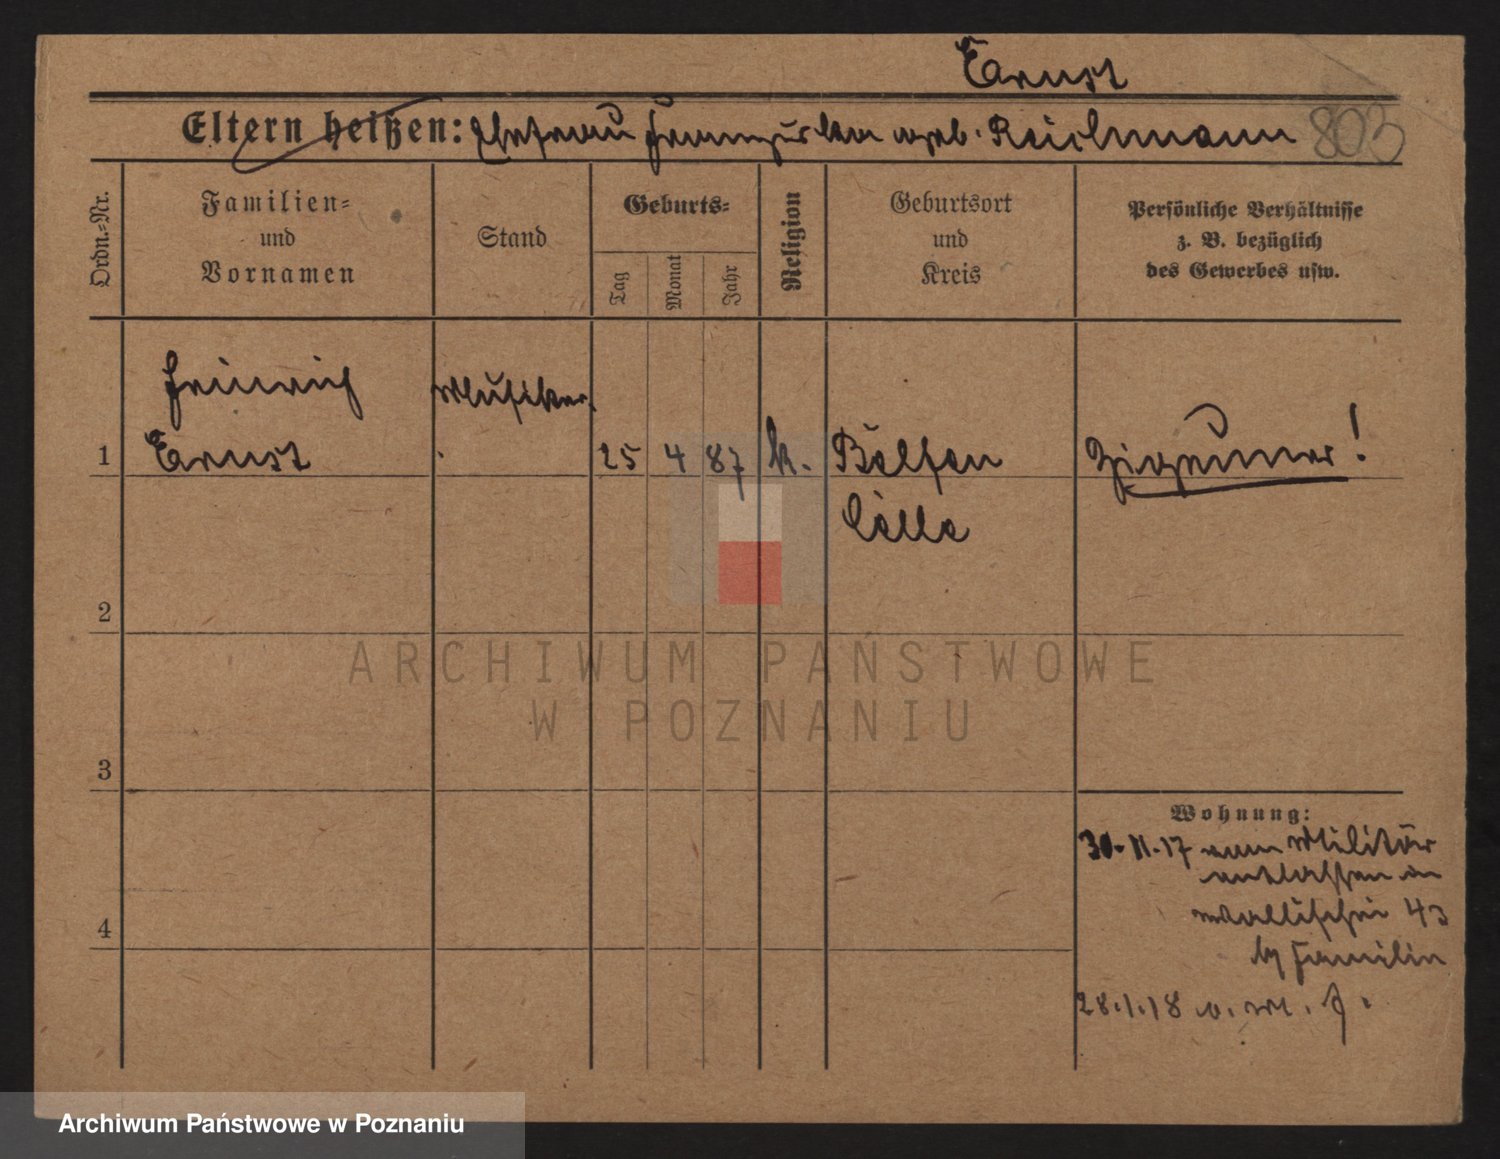 Ernst
Eltern heißen: Ehefrau Franziska geb. Reichmann 803
Ordn.-Nr.
Familien-
und
Vornamen
Stand
Geburts-
Tag
Monat
Jahr
Religion
Geburtsort
und
Kreis
Persönliche Verhältnisse
z. B. bezüglich
des Gewerbes usw.
Heinrich Musiker
1 Ernst 25 4 87 k. Zigeuner!
Celle
2
3
4
Wohnung:
30.11.17 vom Militär
entlassen in
Wallischei 43
by Familie
28.1.18
ARCHIWUM PAŃSTWOWE
W POZNANIU
Archiwum Państwowe w Poznaniu